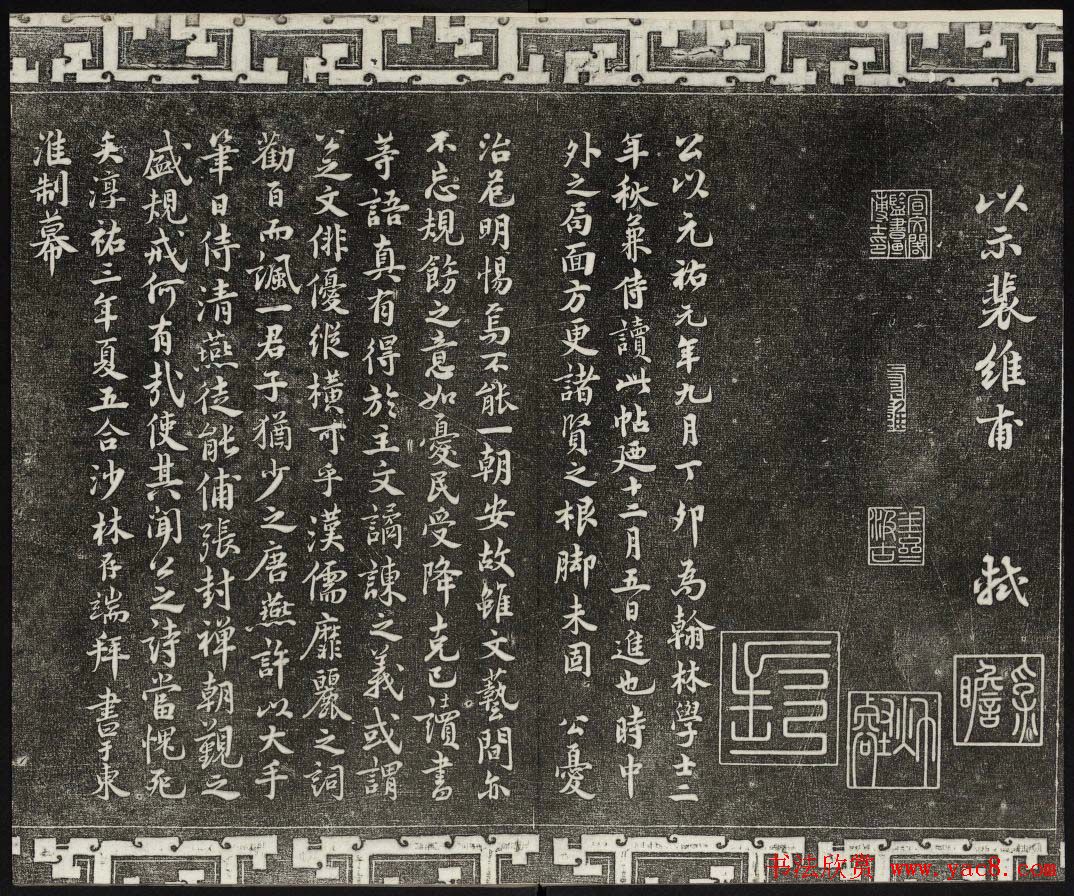 以示裴維甫 軾
公以元祐元年九月丁卯為翰林學士二
年秋兼侍讀此帖廼十二月五日進也時中
外之局面方更諸賢之根脚未固 公憂
治危明惕焉不能一朝安故雖文藝間亦
不忘規餝之意如憂民受降克己讀書
等語真有得於主文譎諫之義或謂
公之文俳優縱橫可乎漢儒靡麗之詞
勸百而諷一君子猶少之唐燕許以大手
筆日侍清燕徒能鋪張封禪朝覲之
盛規戒何有哉使其聞公之詩當愧死
矣淳祐三年夏五合沙林存端拜書于東
淮制幕
子瞻
書法欣赏 www.yac8.com